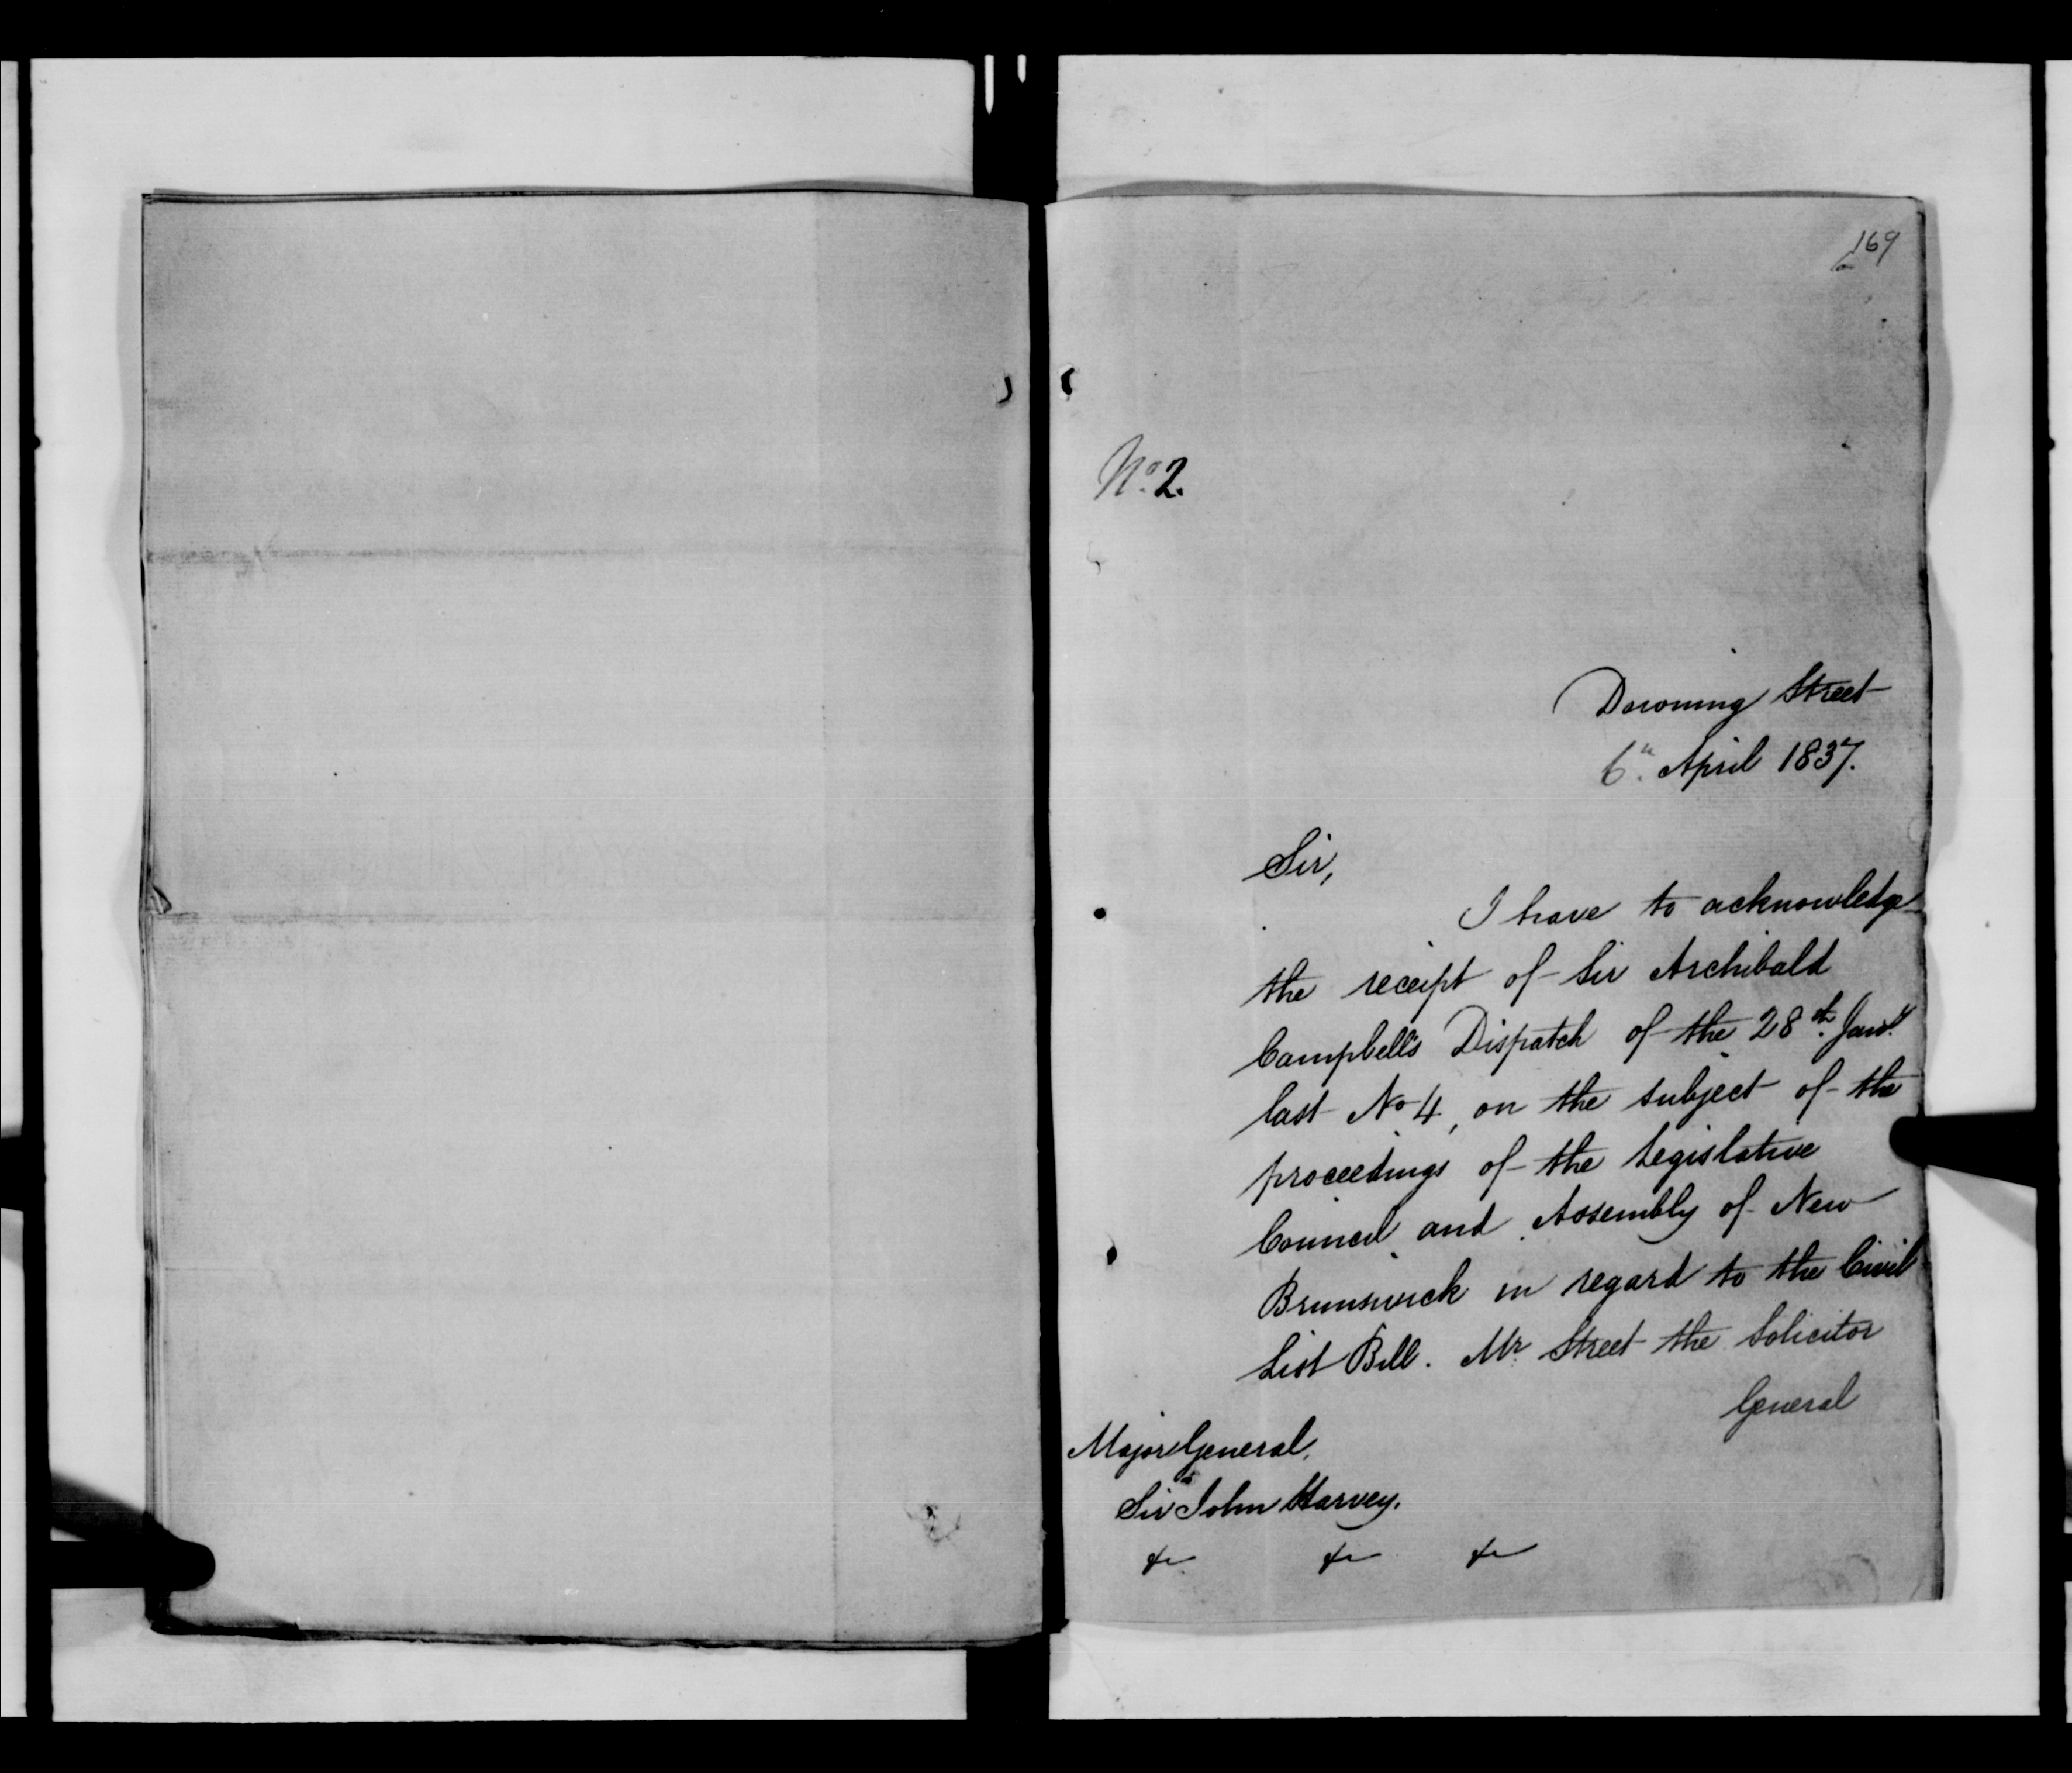 169
No. 2.
Downing Street
6th. April 1837.
Sir,
I have to acknowledge
the receipt of Sir Archibald
Campbell's Dispatch of the 28th. Jany.
last No 4, on the subject of the
proceedings of the Legislative
Council and Assembly of New
Brunswick in regard to the Civil
List Bill. Mr. Street the Solicitor
General
Major General,
Sir John Harvey.
&c &c &c